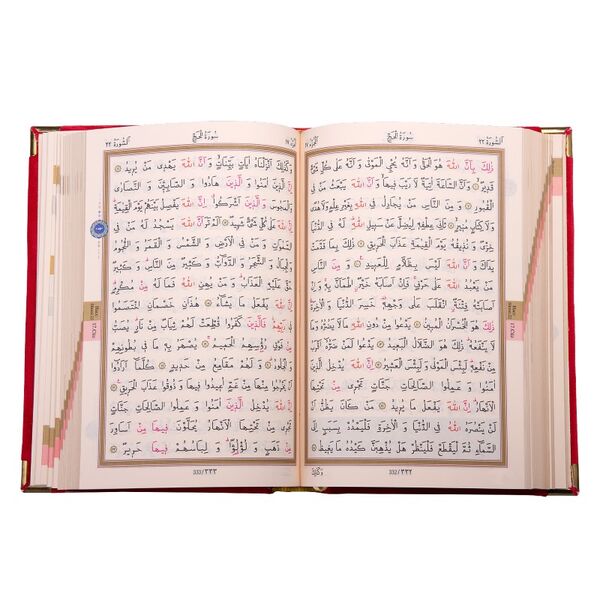 اَلسُّورَةُ ٢٢
سُورَةُ الْحَجِّ
اَلْجُزْءُ ١٧
ذٰلِكَ بِاَنَّ اللّٰهَ هُوَ الْحَقُّ وَاَنَّهُ يُحْيِ الْمَوْتٰى وَاَنَّهُ عَلٰى كُلِّ شَيْءٍ
قَدِيرٌ وَاَنَّ السَّاعَةَ اٰتِيَةٌ لَا رَيْبَ فِيهَا وَاَنَّ اللّٰهَ يَبْعَثُ مَنْ فِي
الْقُبُورِ وَمِنَ النَّاسِ مَنْ يُجَادِلُ فِي اللّٰهِ بِغَيْرِ عِلْمٍ وَلَا هُدًى
وَلَا كِتَابٍ مُنِيرٍ ثَانِيَ عِطْفِهِ لِيُضِلَّ عَنْ سَبِيلِ اللّٰهِ لَهُ فِي الدُّنْيَا
خِزْيٌ وَنُذِيقُهُ يَوْمَ الْقِيٰمَةِ عَذَابَ الْحَرِيقِ ذٰلِكَ بِمَا قَدَّمَتْ
يَدَاكَ وَاَنَّ اللّٰهَ لَيْسَ بِظَلَّامٍ لِلْعَبِيدِ وَمِنَ النَّاسِ
مَنْ يَعْبُدُ اللّٰهَ عَلٰى حَرْفٍ فَاِنْ اَصَابَهُ خَيْرٌ اطْمَاَنَّ بِهِ وَاِنْ
اَصَابَتْهُ فِتْنَةٌ انْقَلَبَ عَلٰى وَجْهِهِ خَسِرَ الدُّنْيَا وَالْاٰخِرَةَ
ذٰلِكَ هُوَ الْخُسْرَانُ الْمُبِينُ يَدْعُو مِنْ دُونِ اللّٰهِ مَا لَا يَضُرُّهُ وَمَا
لَا يَنْفَعُهُ ذٰلِكَ هُوَ الضَّلَالُ الْبَعِيدُ يَدْعُو لَمَنْ ضَرُّهُ اَقْرَبُ
مِنْ نَفْعِهِ لَبِئْسَ الْمَوْلٰى وَلَبِئْسَ الْعَشِيرُ اِنَّ اللّٰهَ يُدْخِلُ
الَّذِينَ اٰمَنُوا وَعَمِلُوا الصَّالِحَاتِ جَنَّاتٍ تَجْرِي مِنْ تَحْتِهَا
الْاَنْهَارُ اِنَّ اللّٰهَ يَفْعَلُ مَا يُرِيدُ مَنْ كَانَ يَظُنُّ اَنْ لَنْ
يَنْصُرَهُ اللّٰهُ فِي الدُّنْيَا وَالْاٰخِرَةِ فَلْيَمْدُدْ بِسَبَبٍ اِلَى
السَّمَاءِ ثُمَّ لْيَقْطَعْ فَلْيَنْظُرْ هَلْ يُذْهِبَنَّ كَيْدُهُ مَا يَغِيظُ
332/٣٣٢
وَكَذٰلِكَ
اَلسُّورَةُ ٢٢
سُورَةُ الْحَجِّ
وَكَذٰلِكَ اَنْزَلْنَاهُ اٰيَاتٍ بَيِّنَاتٍ وَاَنَّ اللّٰهَ يَهْدِي مَنْ يُرِيدُ
اِنَّ الَّذِينَ اٰمَنُوا وَالَّذِينَ هَادُوا وَالصَّابِئِينَ وَالنَّصَارٰى
وَالْمَجُوسَ وَالَّذِينَ اَشْرَكُوا اِنَّ اللّٰهَ يَفْصِلُ بَيْنَهُمْ يَوْمَ الْقِيٰمَةِ
اِنَّ اللّٰهَ عَلٰى كُلِّ شَيْءٍ شَهِيدٌ اَلَمْ تَرَ اَنَّ اللّٰهَ يَسْجُدُ لَهُ مَنْ فِي
السَّمٰوَاتِ وَمَنْ فِي الْاَرْضِ وَالشَّمْسُ وَالْقَمَرُ وَالنُّجُومُ
وَالْجِبَالُ وَالشَّجَرُ وَالدَّوَابُّ وَكَثِيرٌ مِنَ النَّاسِ وَكَثِيرٌ
حَقَّ عَلَيْهِ الْعَذَابُ وَمَنْ يُهِنِ اللّٰهُ فَمَا لَهُ مِنْ مُكْرِمٍ
اِنَّ اللّٰهَ يَفْعَلُ مَا يَشَاءُ هٰذَانِ خَصْمَانِ اخْتَصَمُوا
فِي رَبِّهِمْ فَالَّذِينَ كَفَرُوا قُطِّعَتْ لَهُمْ ثِيَابٌ مِنْ نَارٍ يُصَبُّ
مِنْ فَوْقِ رُؤُسِهِمُ الْحَمِيمُ يُصْهَرُ بِهِ مَا فِي بُطُونِهِمْ
وَالْجُلُودُ وَلَهُمْ مَقَامِعُ مِنْ حَدِيدٍ كُلَّمَا اَرَادُوا
اَنْ يَخْرُجُوا مِنْهَا مِنْ غَمٍّ اُعِيدُوا فِيهَا وَذُوقُوا عَذَابَ الْحَرِيقِ
اِنَّ اللّٰهَ يُدْخِلُ الَّذِينَ اٰمَنُوا وَعَمِلُوا الصَّالِحَاتِ جَنَّاتٍ
تَجْرِي مِنْ تَحْتِهَا الْاَنْهَارُ يُحَلَّوْنَ فِيهَا مِنْ اَسَاوِرَ
مِنْ ذَهَبٍ وَلُؤْلُؤًا وَلِبَاسُهُمْ فِيهَا حَرِيرٌ
333/٣٣٣
17.Cüz